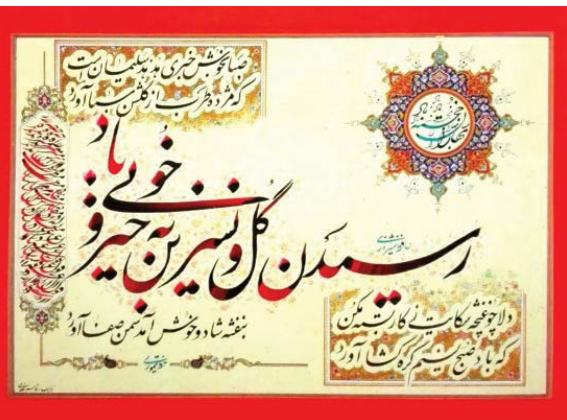 صبا بخوش خبری هدهد سلیمان است
که مژده طرب از گلشن سبا آورد
بهارتان خجسته باد
رسیدن گل و نسرین به خیر و خوبی باد
حافظ شیرازی
بنفشه شاد و خوش آمد سمن صفا آورد
دلا چو غنچه شکایت ز کار بسته مکن
که باد صبح نسیم گره گشا آورد